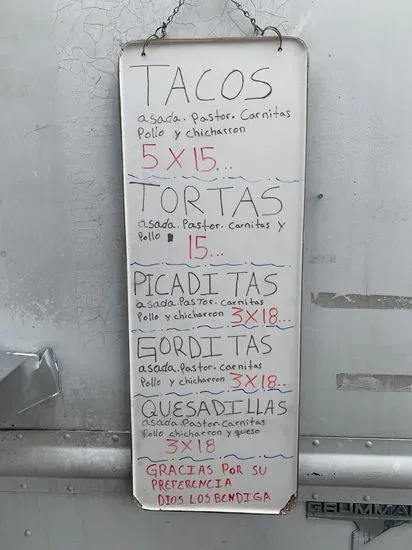 TACOS
asada. Pastor. Carnitas
Pollo y chicharron
5 X 15...
TORTAS
asada. Pastor. Carnitas y
Pollo
15...
PICADITAS
asada. Pastor. Carnitas
Pollo y chicharron 3X18...
GORDITAS
asada. Pastor. Carnitas
Pollo y chicharron 3X18..
QUESADILLAS
asada. Pastor. Carnitas
Pollo chicharron y queso
3X18
GRACIAS POR SU
PREFERENCIA
DIOS LOS BENDIGA
GRUMMA